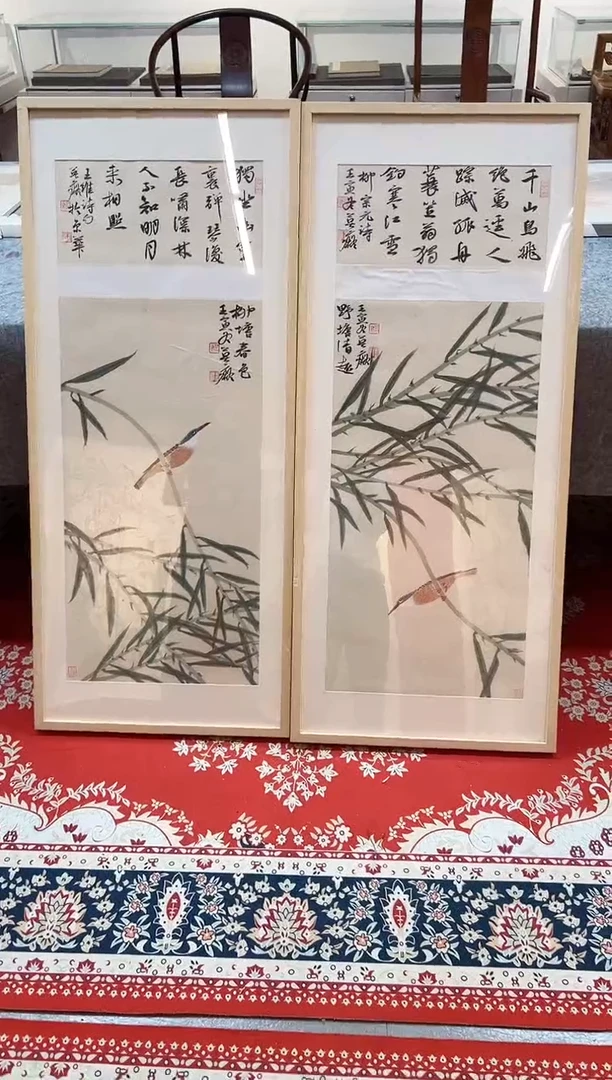 千山鳥飛
絕萬逕人
踪滅孤舟
蓑笠翁獨
釣寒江雪
柳宗元詩
壬寅冬
野塘清趣
壬寅冬
獨坐幽篁
裏彈琴復
長嘯深林
人不知明月
來相照
王維詩句
於京華
柳塘春色
壬寅冬